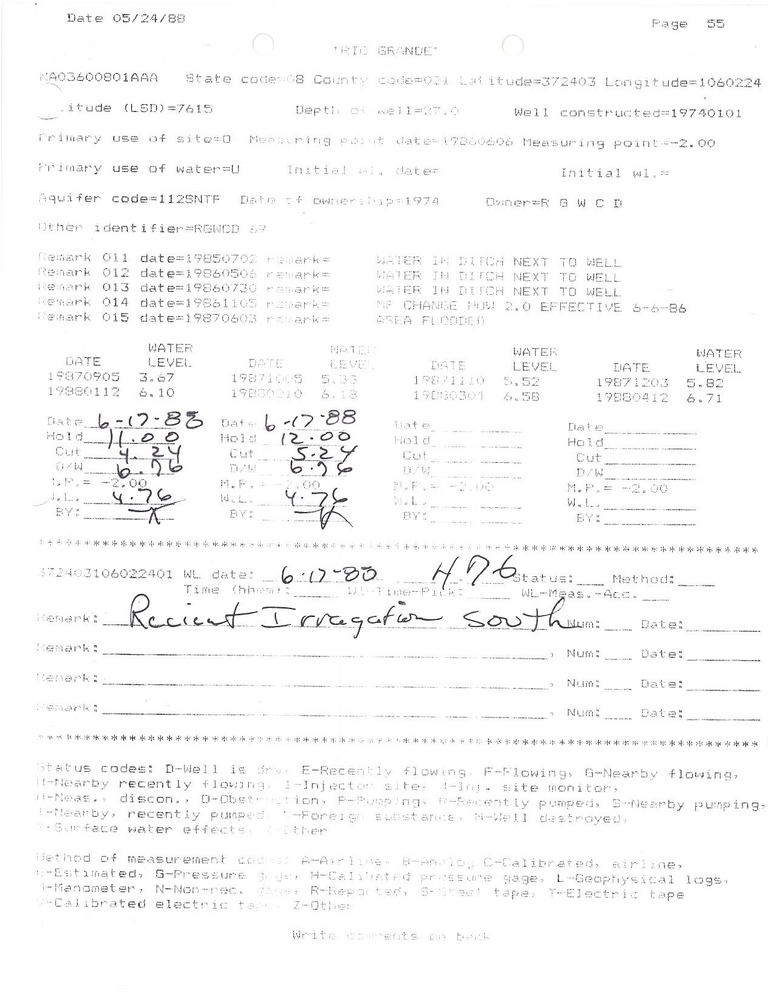 Date 05/24/88 Page 55
'RIO GRANDE'
NA03600801AAA State code=08 County code=021 Latitude=372403 Longitude=1060224
itude (LSD)=7615 Depth of well=27.0 Well constructed=19740101
Primary use of site=O Measuring point date=19860606 Measuring point=-2.00
Primary use of water=U Initial wl. date= Initial wl.=
Aquifer code=112SNTF Date of ownership=1974 Owner=R G W C D
Other identifier=RGWCD 69
Remark 011 date=19850702 remark= WATER IN DITCH NEXT TO WELL
Remark 012 date=19860506 remark= WATER IN DITCH NEXT TO WELL
Remark 013 date=19860730 remark= WATER IN DITCH NEXT TO WELL
Remark 014 date=19861105 remark= MP CHANGE NOW 2.0 EFFECTIVE 6-6-86
Remark 015 date=19870603 remark= AREA FLOODED
WATER WATER WATER WATER
DATE LEVEL DATE LEVEL DATE LEVEL DATE LEVEL
19870905 3.67 19871005 5.33 19871110 5.52 19871203 5.82
19880112 6.10 19880210 6.18 19880304 6.58 19880412 6.71
Date 6-17-88 Date 6-17-88 Date Date
Hold 11.00 Hold 12.00 Hold Hold
Cut 4.24 Cut 5.24 Cut Cut
D/W 6.76 D/W 6.76 D/W D/W
M.P.= -2.00 M.P.= -2.00 M.P.= -2.00 M.P.= -2.00
W.L. 4.76 W.L. 4.76 W.L. W.L.
BY: BY: BY: BY:
****************************************************************
372403106022401 WL date: 6-17-88 476 Status: Method:
Time (hhmm): WL-Time-Pick: WL-Meas.-Acc.
Remark: Recient Irragation South Num: Date:
Remark: , Num: Date:
Remark: , Num: Date:
Remark: , Num: Date:
****************************************************************
Status codes: D-Well is dry, E-Recently flowing, F-Flowing, G-Nearby flowing,
H-Nearby recently flowing, I-Injector site, J-Inj. site monitor,
N-Meas., discon., O-Obstruction, P-Pumping, R-Recently pumped, S-Nearby pumping,
T-Nearby, recently pumped, V-Foreign substance, W-Well destroyed,
X-Surface water effects, Z-Other
Method of measurement codes: A-Airline, B-Analog C-Calibrated, airline,
E-Estimated, G-Pressure gage, H-Calibrated pressure gage, L-Geophysical logs,
M-Manometer, N-Non-rec. gage, R-Reported, S-Steel tape, T-Electric tape
V-Calibrated electric tape, Z-Other
Write comments on back